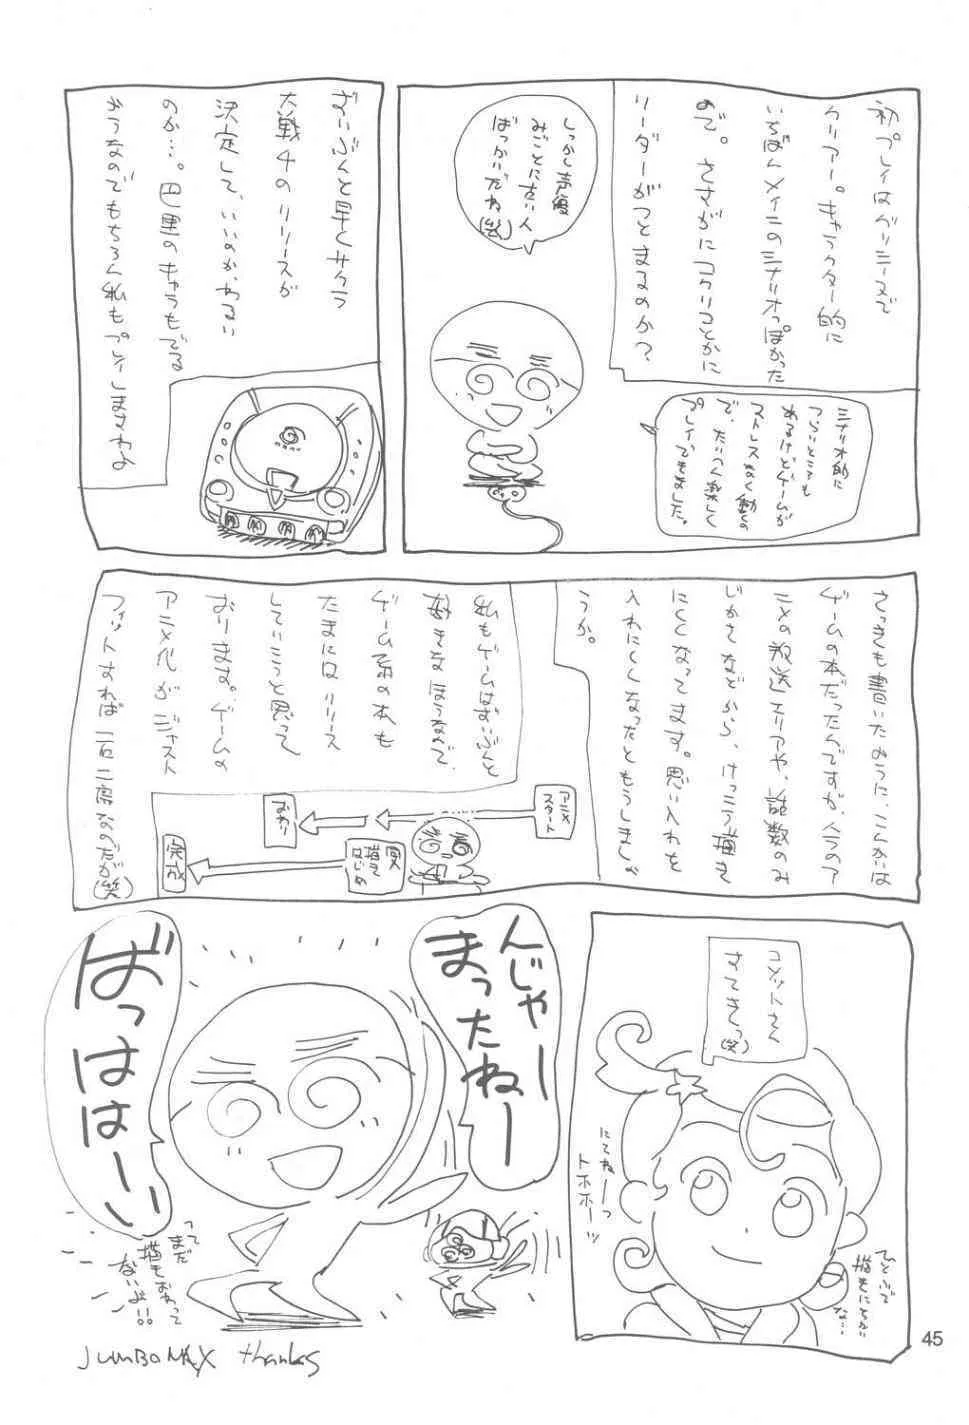 初プレイはグリシーヌで
クリアー。キャラクター的に
いちばんメインのシナリオっぽかった
ので。さすがにコクリコとかに
リーダーがつとまるのか？
しっかし声優
みごとにすい人
ばっかいだね
(笑)
シナリオ的に
つらいところも
あるけどゲームが
ストレスなく動くの
で、たいへん楽しく
プレイできました。
ずいぶんと早くサクラ
大戦4のリリースが
決定して、いいのか、わるい
のか…。巴里のキャラもでる
ようなのでもちろん私もプレイしますわよ
さっきも書いたように、こんかいは
ゲームの本だったんですが、今のア
ニメの放送エリアや、話数のみ
じかさなどから、けっこう描き
にくくなってます。思い入れを
入れにくくなったともうしましょ
うか。
私もゲームはずいぶんと
好きなほうなんで、
ゲーム系の本も
たまにはリリース
していこうと思って
おります。ゲームの
アニメ化がジャスト
フィットすれば一石二鳥なのだが(笑)
アニメ
スタート
おわり
夏
描き
はじめ
完成
コメットさん
すてきっ
(笑)
にてねーっ
トホホーッ
ひといで
描きにちかい
な…
んじゃー
まったねー
ばっはは―い
って
まだ
描きおわって
ないよ!!
JUMBOMAX thanks
45